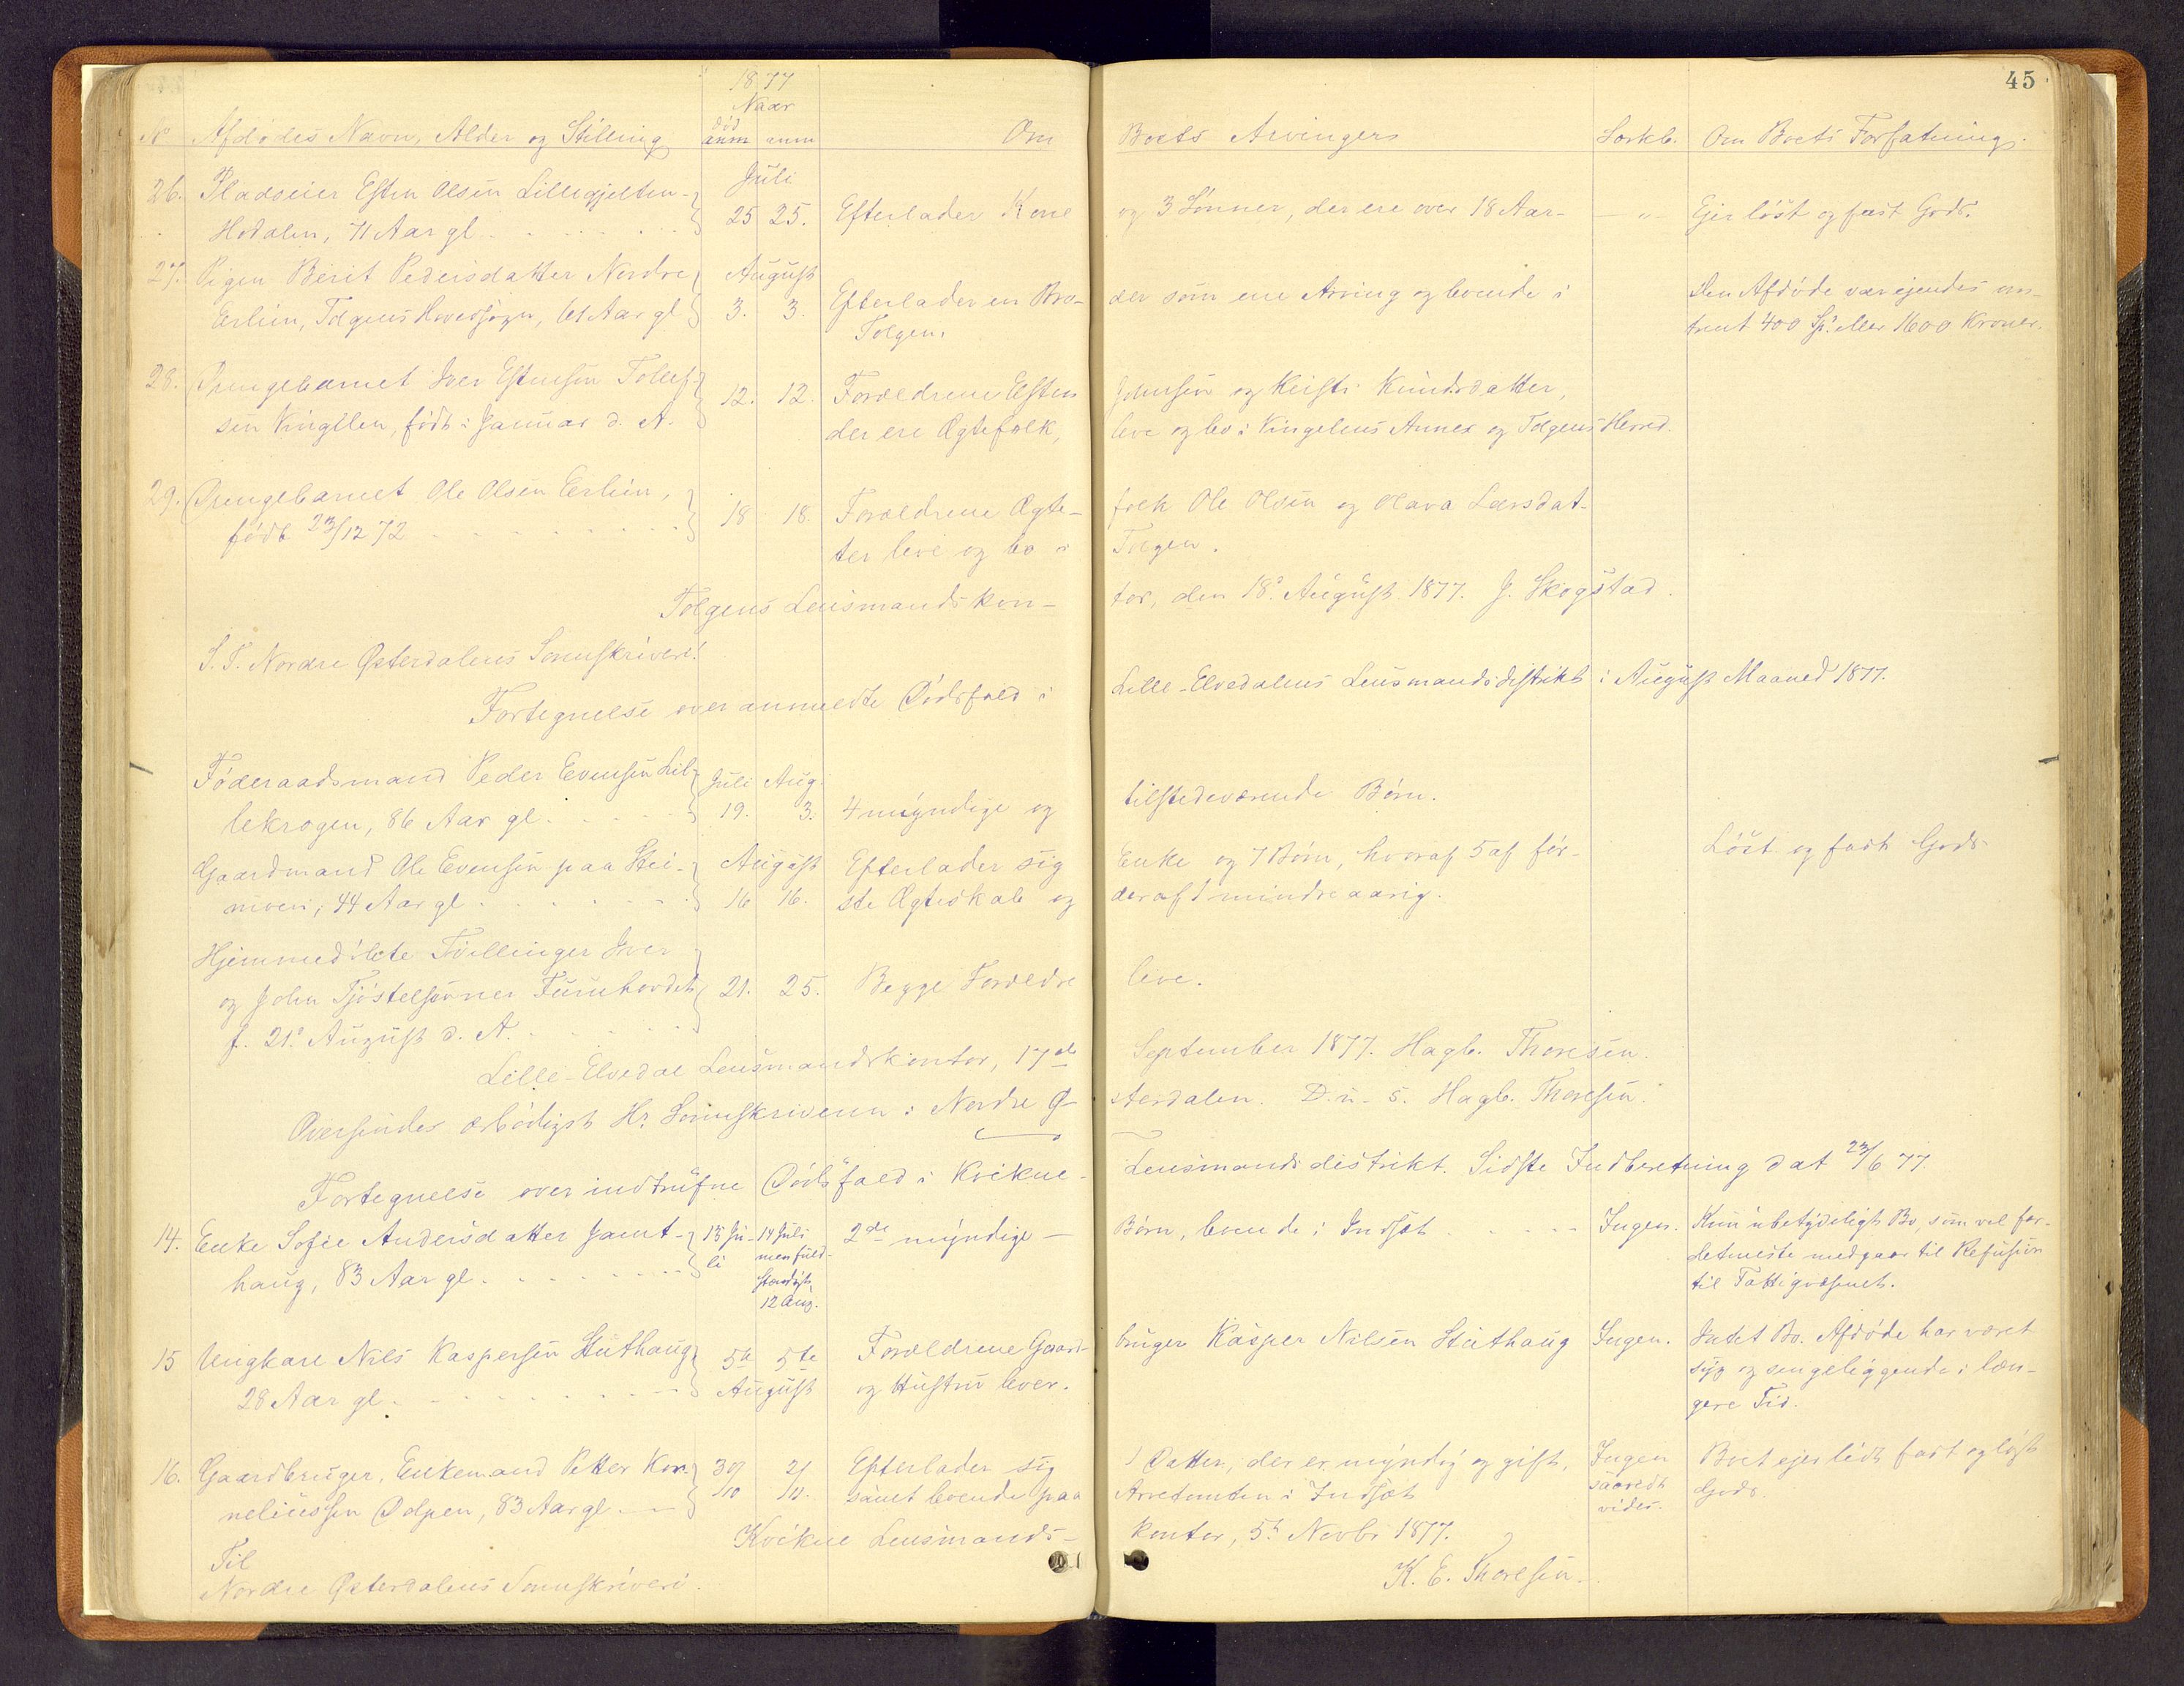 45
1877
Naar
No Afdødes Navn, Alder og Stilling død anm anm Om Boets Arvinger Særkb. Om Boets Forfatning.
Juli
26. Pladseier Esten Olsen Lillegjelten- 25 25. Efterlader Kone og 3 Sønner, der ere over 18 Aar — " — Ejer løst og fast Gods.
Hodalen, 71 Aar gl.
27. Pigen Berit Pedersdatter Nordre August
Erlien, Tolgens Hovedsogn, 61 Aar gl 3. 3. Efterlader en Bro- der som ene Arving og boende i Den Afdøde var ejendes om-
Tolgen. trent 400 Sp. eller 1600 Kroner.
28. Drengebarnet Iver Estensen Tollef- 12. 12. Forældrene Esten Johnsen og Kirsti Knudsdatter,
sen Vingelen, født i Januar d. A. der ere Ægtefolk, leve og bo i Vingelens Annex og Tolgens Herred.
29. Drengebarnet Ole Olsen Erlien,
født 23/12 72 18 18. Forældrene Ægte- folk Ole Olsen og Olava Larsdat-
ter leve og bo i Tolgen.
Tolgens Lensmandskon- tor, den 18. August 1877. J. Skogstad.
S. T. Nordre Østerdalens Sorenskriveri!
Fortegnelse over anmeldte Dødsfald i Lille-Elvedalens Lensmandsdistrikt i August Maaned 1877.
Føderaadsmand Peder Evensen Lil- Juli Aug.
lekrogen, 86 Aar gl. 19. 3. 4 myndige og tilstedeværende Børn.
Gaardmand Ole Evensen paa Stei- August Efterlader sig Enke og 7 Børn, hvoraf 5 af før- Løst og fast Gods
moen, 44 Aar gl 16 16. ste Ægteskab og deraf 1 mindreaarig.
Hjemmedøbte Tvillinger Iver
og John Tjøstelsønner Furuhovdet 21. 25. Begge Forældre leve.
f. 21. August d. A.
Lille-Elvedal Lensmandskontor, 17de September 1877. Hagb. Thoresen.
Oversendes ærbødigst Hr. Sorenskriveren i Nordre Ø- sterdalen. D. u. s. Hagb. Thoresen.
Fortegnelse over indtrufne Dødsfald i Kvikne- Lensmandsdistrikt. Sidste Indberetning dat 23/6 77
14. Enke Sofie Andersdatter Jamt- 13 Ju- 14 Juli 2de myndige — Børn, boende i Indset Ingen. Kun ubetydeligt Bo, som vel for-
haug, 83 Aar gl. li men fuld- detmeste medgaar til Refusion
stændigt til Fattigvæsenet.
12 Aug.
15 Ungkarl Nils Kaspersen Stuthaug, 5te 5te Forældrene Gaard- bruger Kasper Nilsen Stuthaug Ingen. Intet Bo. Afdøde har været
28 Aar gl. August og Hustru lever. syg og sengeliggende i læn-
gere Tid.
16. Gaardbruger, Enkemand Petter Kor- 30/10 2/11. Efterlader sig 1 Datter, der er myndig og gift, Ingen Boet ejer lidt fast og løst
neliussen Dølpen, 83 Aar gl. samt boende paa Arvetomten i Indset saavidt vides. Gods.
Kvikne Lensmands- kontor, 5te Novbr 1877.
Til K. E. Thoresen.
Nordre Østerdalens Sorenskriveri.